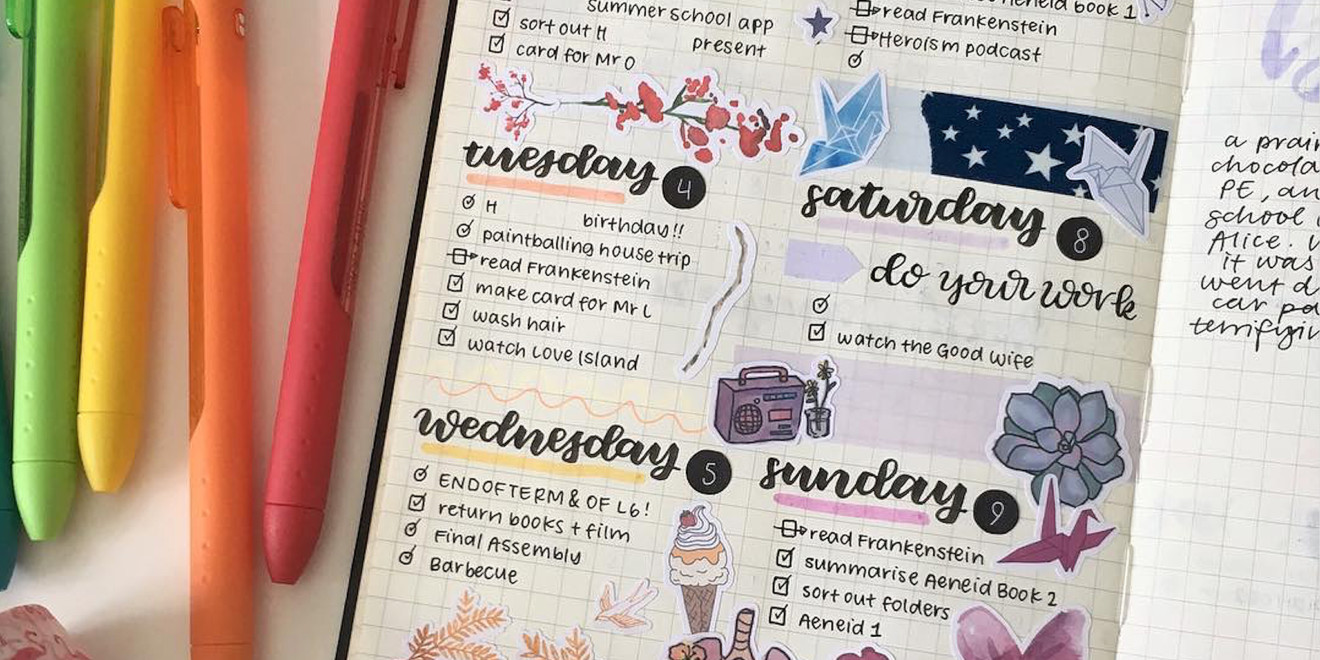 summer school app
sort out H
present
card for Mr O
tuesday 4
H birthday!!
paintballing house trip
read Frankenstein
make card for Mr L
wash hair
watch Love Island
wednesday 5
END OF TERM & OF L6!
return books + film
Final Assembly
Barbecue
Aeneid book 1
read Frankenstein
Heroism podcast
saturday 8
do your work
watch the Good Wife
sunday 9
read Frankenstein
summarise Aeneid Book 2
sort out folders
Aeneid 1
a prair
chocola
PE, an
school
Alice.
it was
went d
car pa
terrifyin